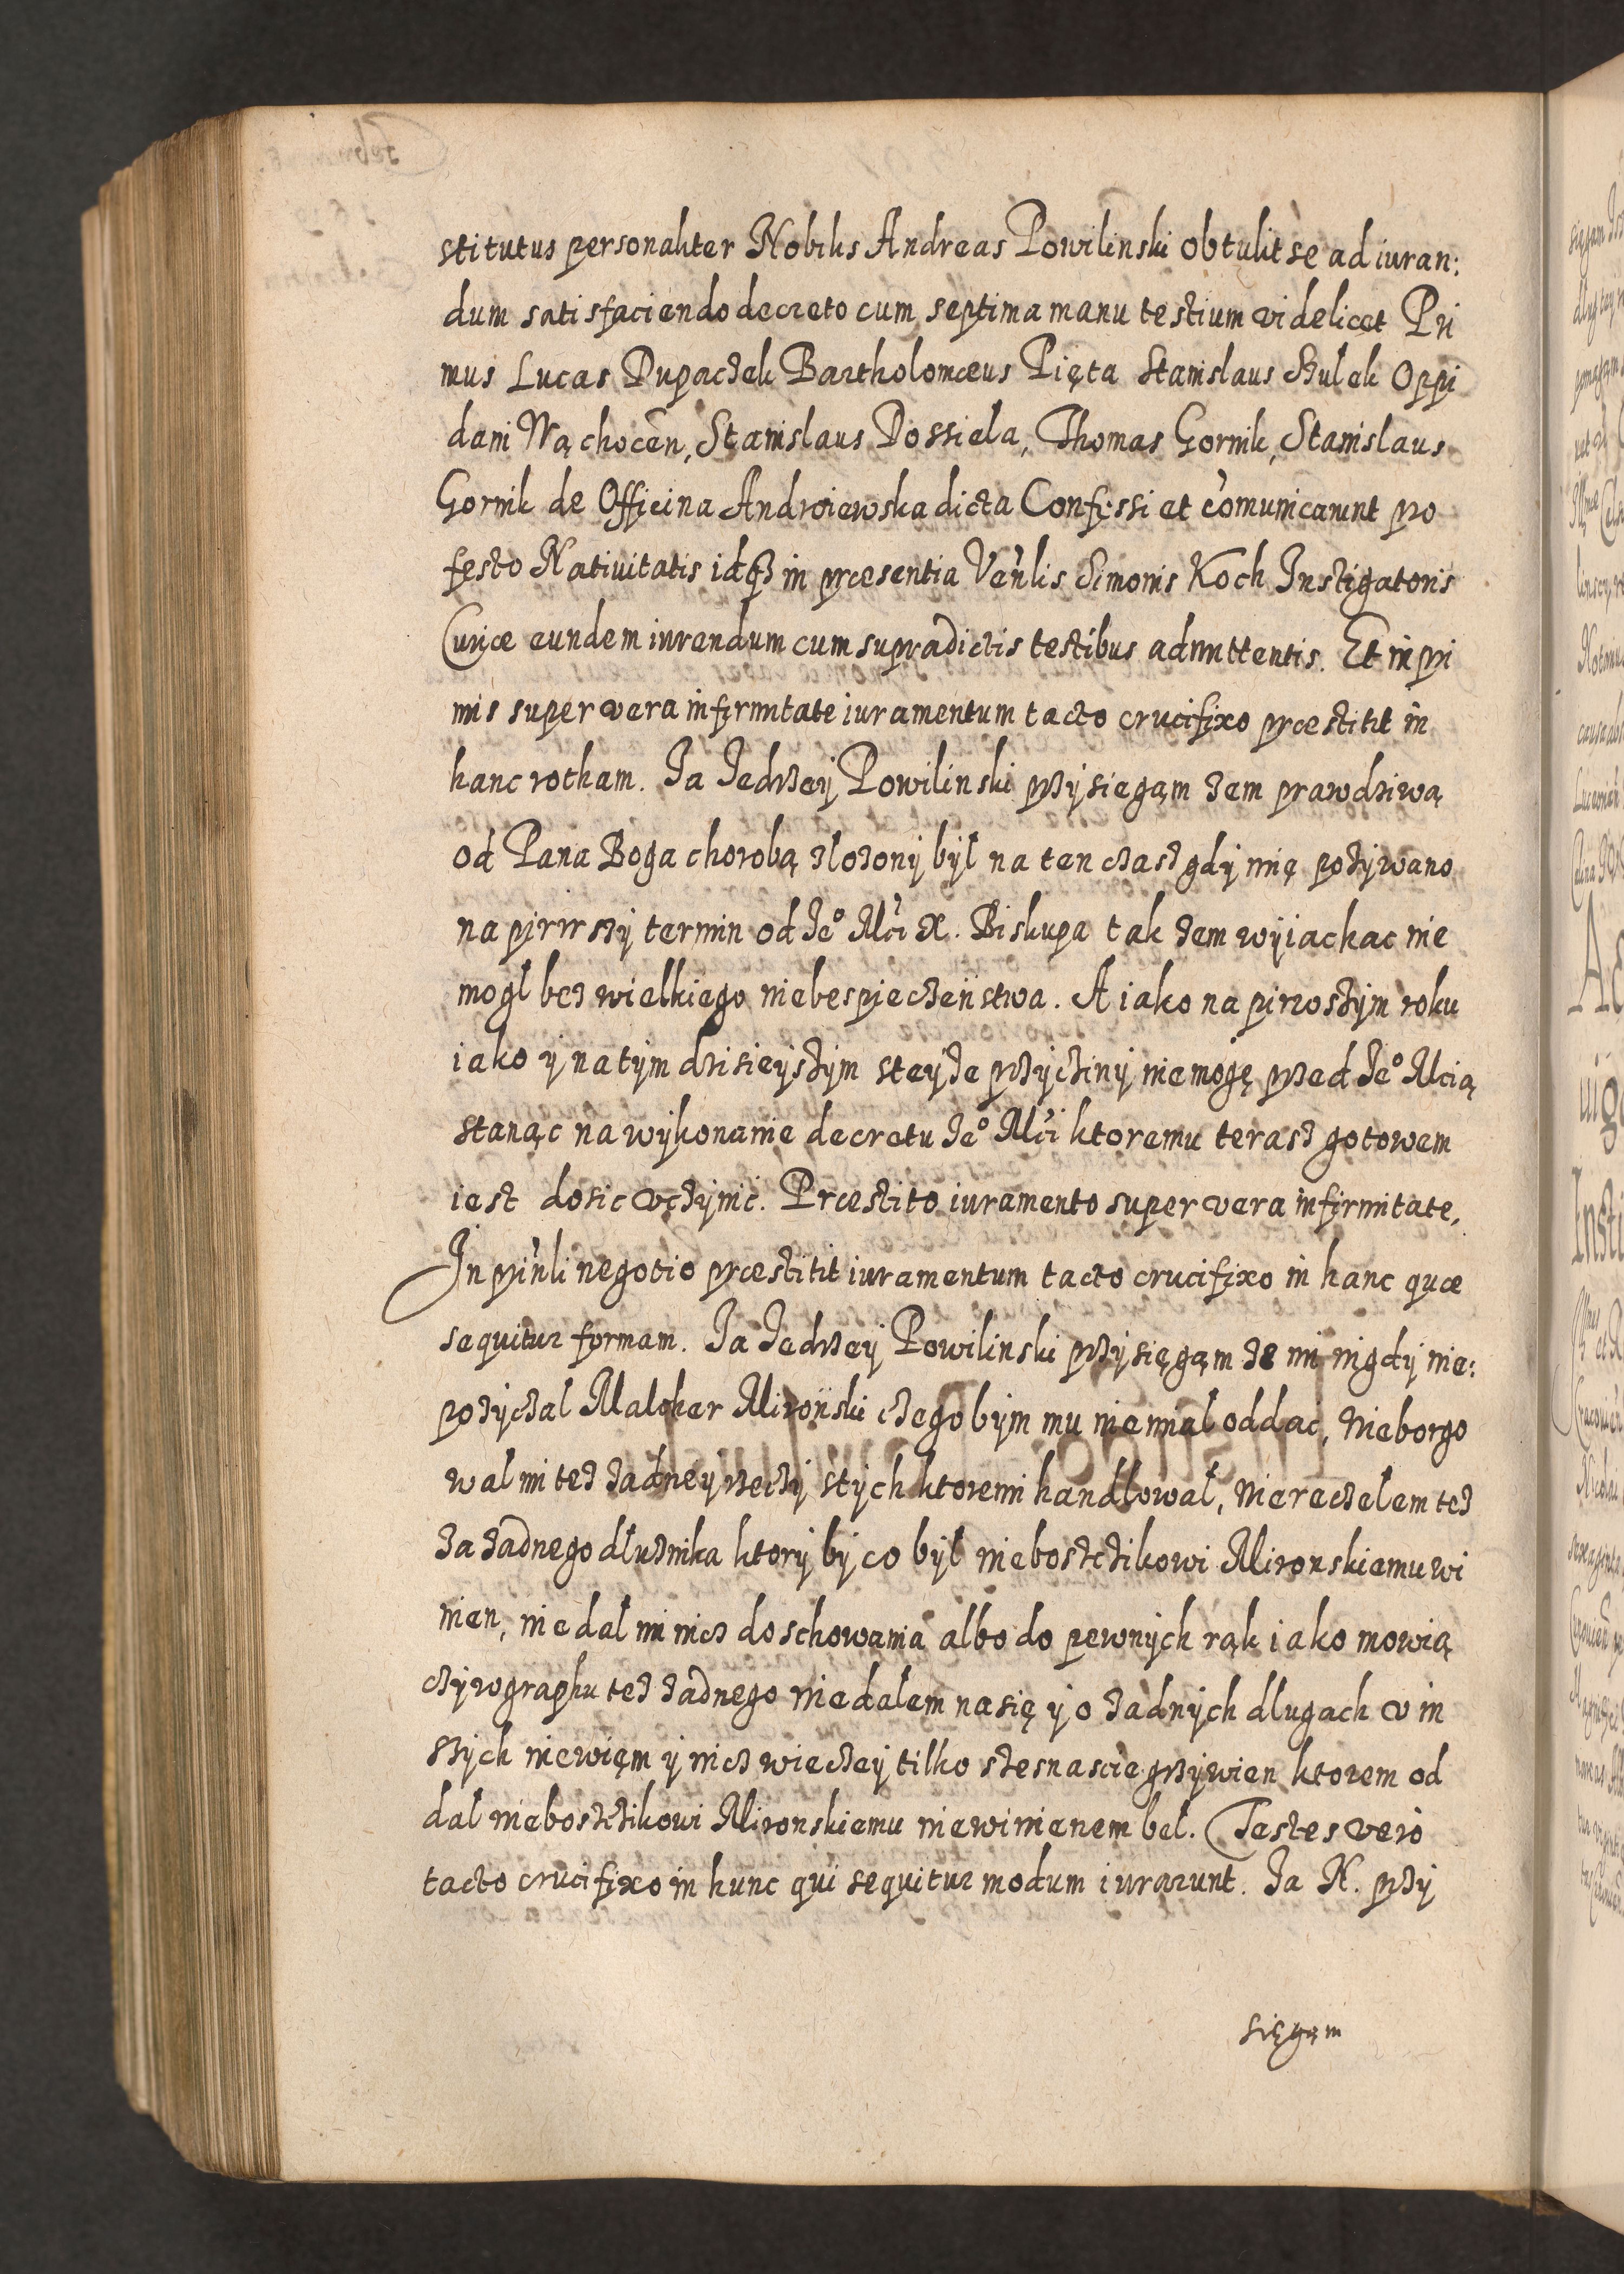 stitutus personaliter Nobilis Andreas Powilinski obtulit se ad iuran:
dum satisfaciendo decreto cum septima manu testium videlicet Pri
mus Lucas Dupaczek Bartholomæus Pięta Stanislaus Szulek Oppi
dani Wąchocen̄, Stanislaus Dossiela, Thomas Gornik, Stanislaus
Gornik de Officina Andrzeiewska dicta Confessi et com̄unicarunt pro
festo Nativitatis idq3 in præsentia Ven̄lis Simonis Koch Instigatoris
Curiæ eundem iurandum cum supradictis testibus admittentis. Et inpri
mis super vera infirmitate iuramentum tacto crucifixo præstitit in
hanc rotham. Ja Jedrzey Powilinski przysiegąm zem prawdziwą
od Pana Boga chorobą złozony był na ten czasz gdy mię pozywano
na pirwszy termin od Je° Mći X. Biskupa tak zem wyiachac nie
mogł bez wielkiego niebespieczenstwa. A iako na pirwszym roku
iako y na tym dzisieyszym steyze przyczyny niemogę przed Je° Mcią
stanąc na wykonanie decretu Je° Mći ktoremu terasz gotowem
iest dosic vczynić. Præstito iuramento super vera infirmitate,
In prin̄li negotio præstitit iuramentum tacto crucifixo in hanc quæ
sequitur formam. Ja Jedrzey Powilinski przysięgąm ze mi nigdy nie:
pozyczal Malcher Mironski czegobym mu niemial oddać, Nieborgo
wal mi tez zadney rzeczy stych ktoremi handlowal, Nereczelem tez
za zadnego dłuznika ktory by co był nieboszczikowi Mironskiemu wi
nien, nie dal mi nicz do schowania albo do pewnych rąk iako mowią
czyrographu tez zadnego niedalem na się y o zadnych dlugach v in
szych niewięm y nicz wieczey tilko szesnascie grzywien ktorem od
dal nieboszczikowi Mironskiemu niewinienem bel. Testes vero
tacto crucifixo in hunc qui sequitur modum iurarunt. Ja N. przy
sięgąm